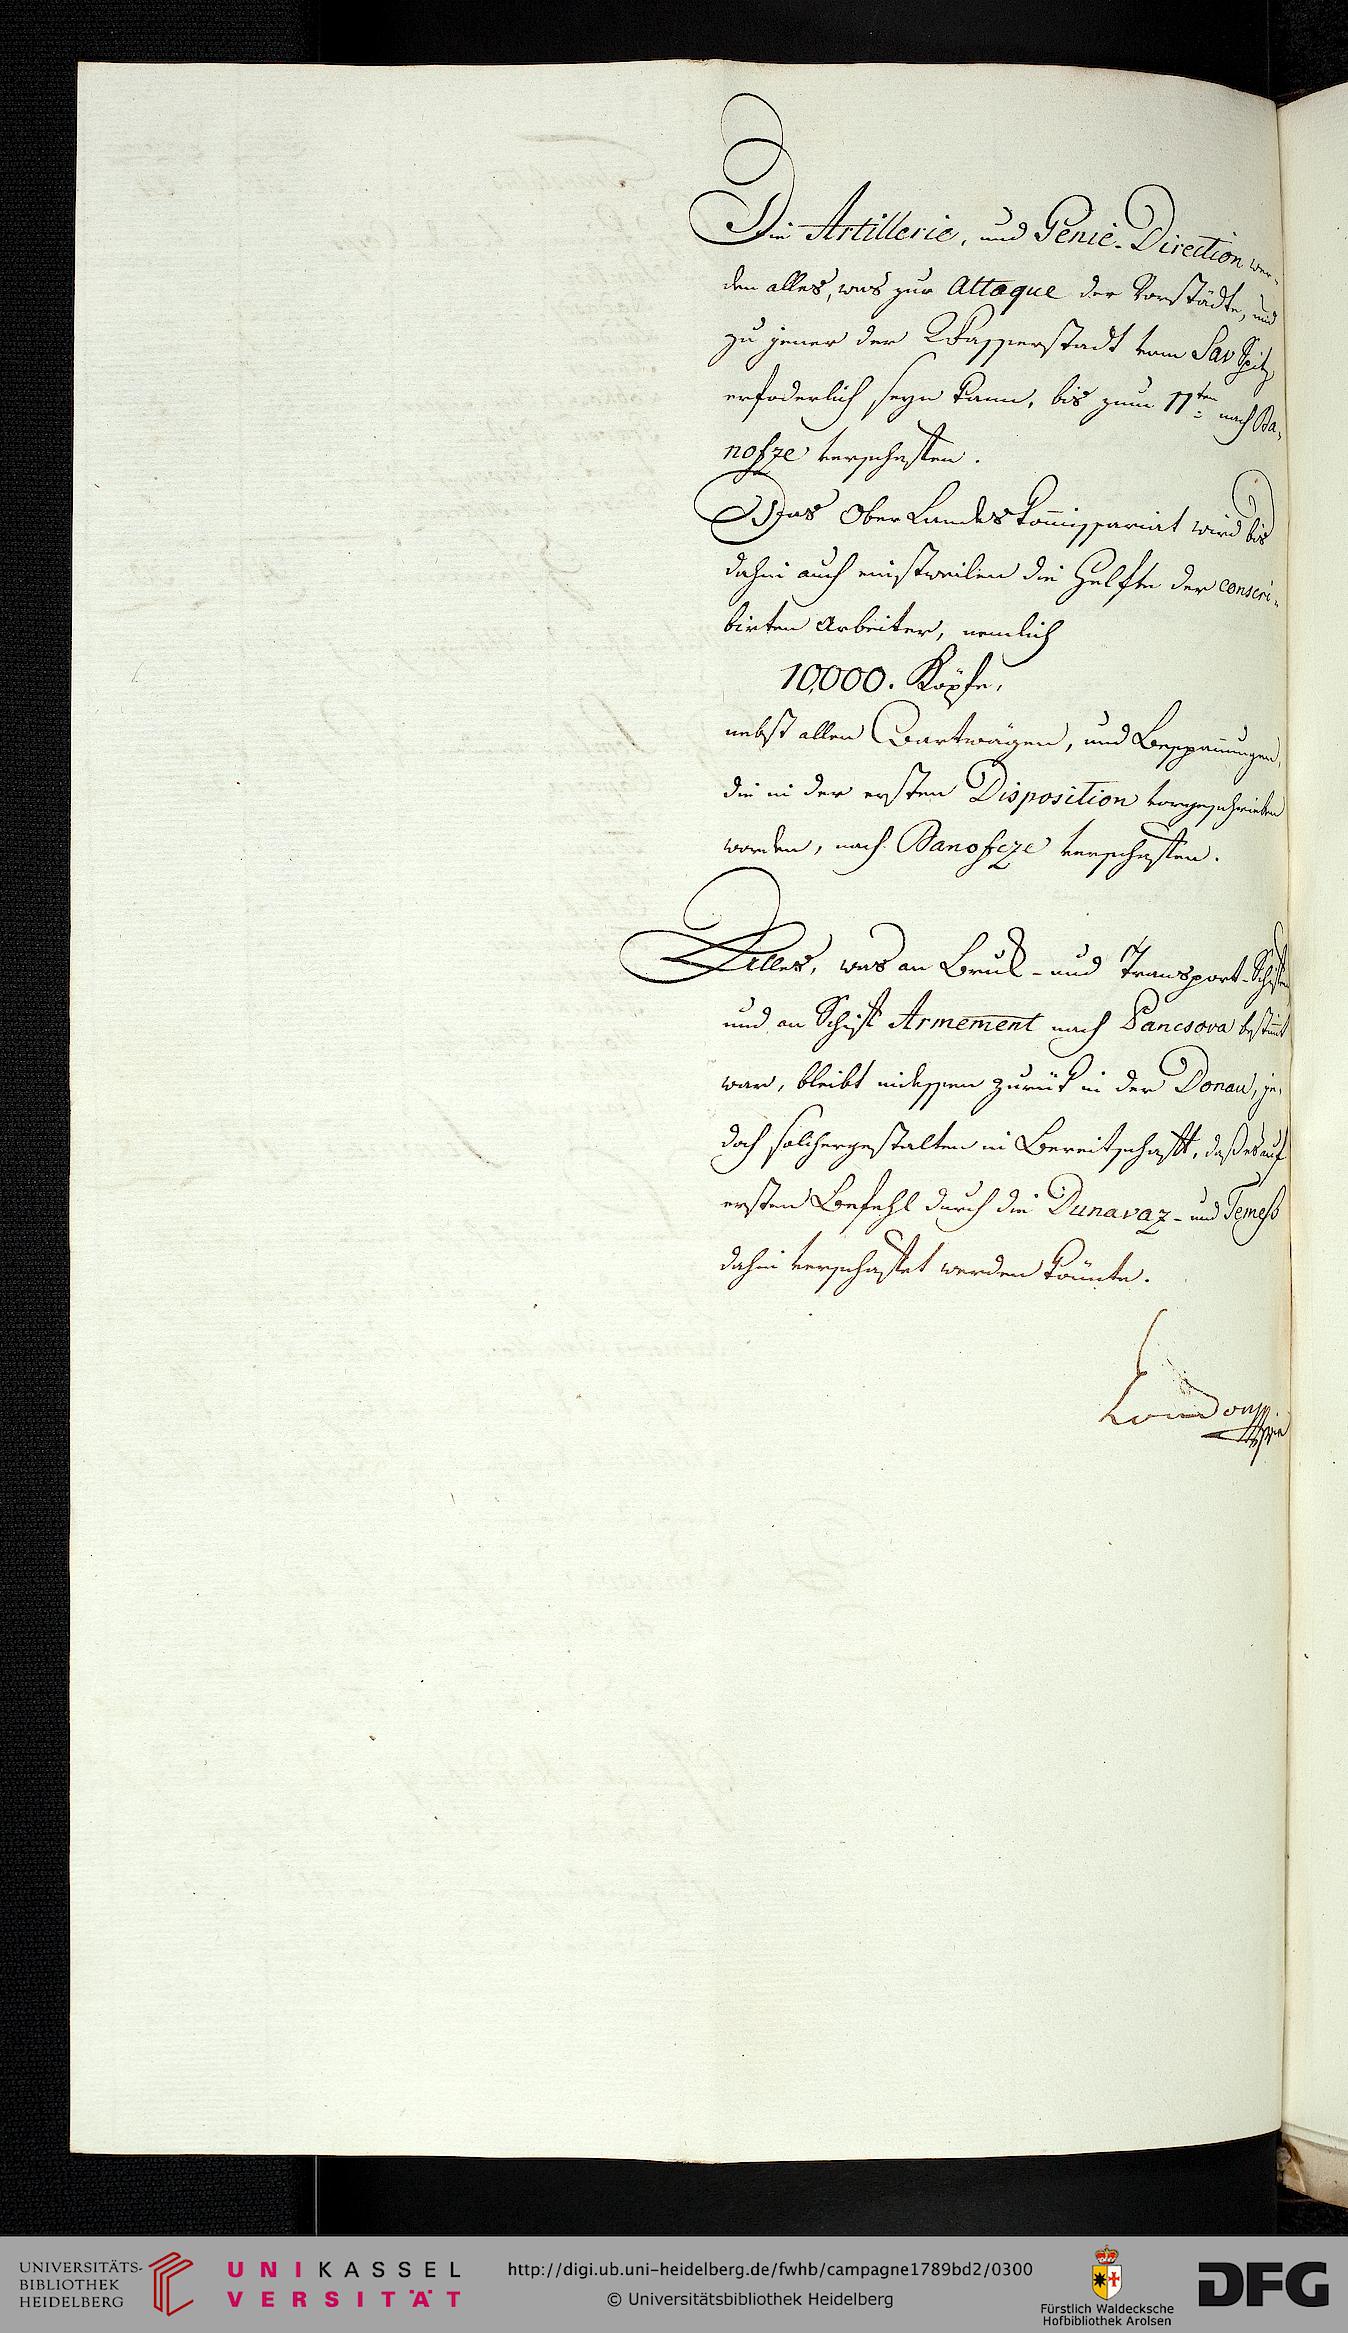 Die Artillerie, und Genie-Direction wer-
den alles, was zur Attaque der Vorstädte, und
zu jener der Wasserstadt vom Sav Spitz
erfoderlich seyn kann, bis zum 11ten nach Ba-
nofze verschaffen.
Das Ober Landes Kommissariat wird bis
dahin auch einstweilen die Helfte der conscri-
birten Arbeiter, nemlich
10,000. Köpfe,
nebst allen Wartwägen, und Bespannungen,
die in der ersten Disposition vorgeschrieben
worden, nach Banofcze verschaffen.
Alles, was an Bruk- und Transport-Schiffen
und an Schiff Armement nach Pancsova bestimmt
war, bleibt indessen zurük in der Donau, je-
doch solchergestalten in Bereitschafft, daß es auf
ersten Befehl durch die Dunavaz- und Temess
dahin verschaffet werden könnte.
Loudon
UNIVERSITÄTS-
BIBLIOTHEK
HEIDELBERG
UNIKASSEL
VERSITÄT
http://digi.ub.uni-heidelberg.de/fwhb/campagne1789bd2/0300
© Universitätsbibliothek Heidelberg
Fürstlich Waldecksche
Hofbibliothek Arolsen
DFG